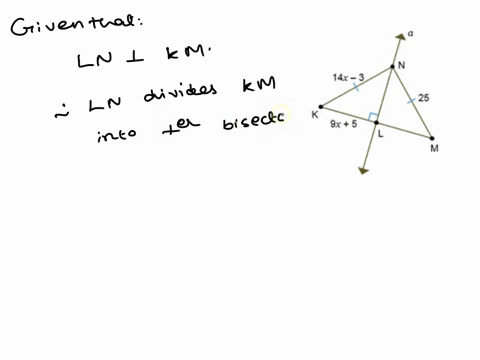 Given that:
LN ⊥ KM.
∴ LN divides KM
into ⊥er bisecto
a
N
14x – 3
25
K
9x + 5
L
M